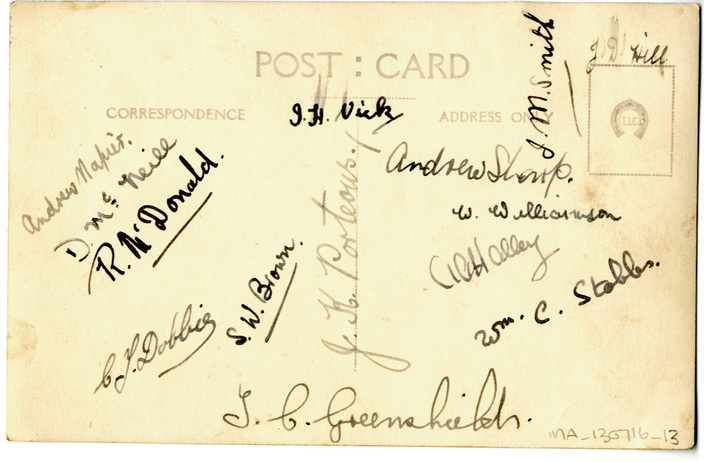 POST : CARD
CORRESPONDENCE
ADDRESS ONLY
J. M. Smith
J D Hill
J. H. Vick
Andrew Napier.
D. McNeill
R. McDonald.
J. K. Porteous.
Andrew Sharp.
W. Williamson
Halley
Wm. C. Stobbs.
S. W. Brown.
C J. Dobbie
T. C. Greenshields.
MA_130716_13